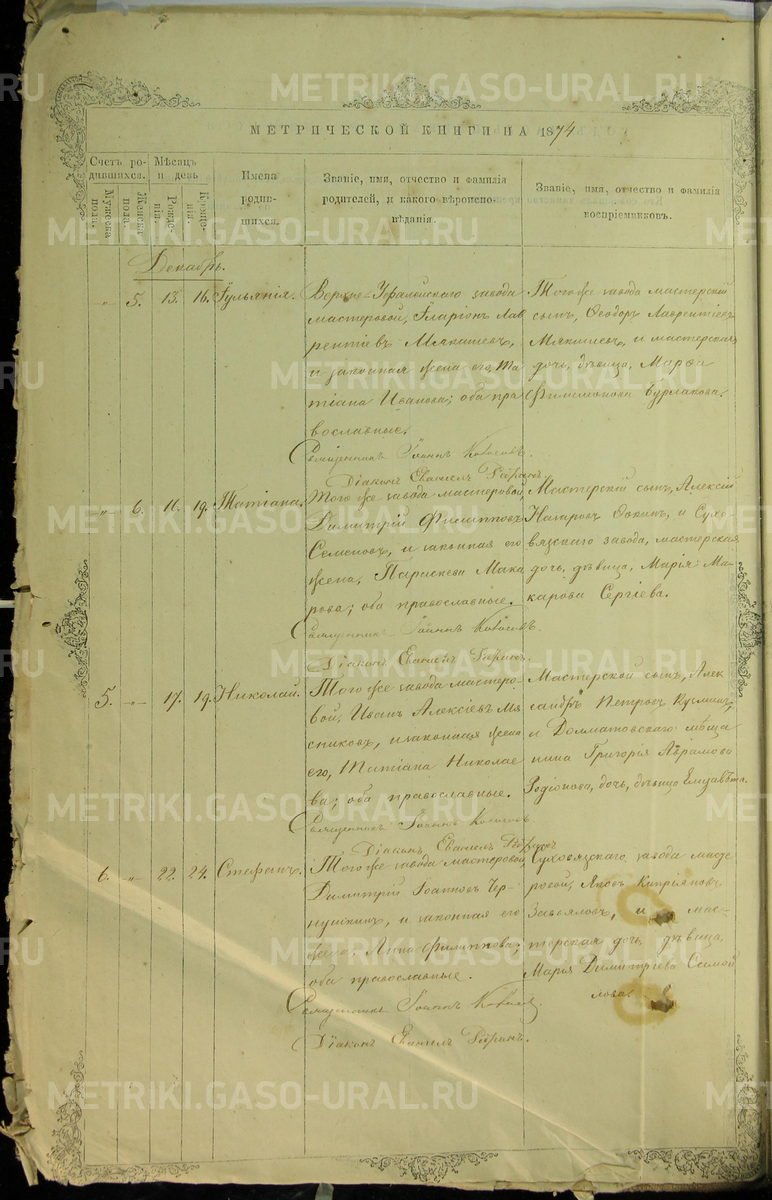 METRIKI.GASO-URAL.RU
МЕТРИЧЕСКОЙ КНИГИ НА 1874
Счетъ ро-
дившихся.
Мѣсяцъ
и день
Мужеска
пола.
Женска
пола.
Рожде-
нія.
Креще-
нія.
Имена
родив-
шихся.
Званіе, имя, отчество и фамилія
родителей, и какого вѣроиспо-
вѣданія.
Званіе, имя, отчество и фамилія
воспріемниковъ.
Декабрь.
„ 5. 13. 16. Іульянія.
Верхне-Уфалейскаго завода
мастеровой, Иларіонъ Лав
рентіевъ
и законная жена его, Та
тіана Иванова; оба пра
вославные.
Священникъ Іоаннъ
Діаконъ
Того же завода мастерскій
сынъ, Ѳеодоръ Лаврентіевъ
и мастерская
дочь, дѣвица, Марѳа
Филимонова Бурлакова.
„ 6. 11. 19. Татіана.
Того же завода мастеровой
Димитрій Филипповъ
Семеновъ, и законная его
жена, Параскева Мака
рова; оба православные.
Священникъ Іоаннъ
Діаконъ
Мастерскій сынъ, Алексій
и Сухо-
вязскаго завода, мастерская
дочь, дѣвица, Марія Ма
карова Сергіева.
5. „ 17. 19. Николай.
Того же завода мастеро-
вой, Иванъ Алексіевъ Мя
сниковъ, и законная жена
его, Татіана Николае
ва; оба православные.
Священникъ Іоаннъ
Діаконъ
Мастерской сынъ, Алек
сандръ Петровъ
и Долматовскаго мѣща
нина Григорія Абрамова
Родіонова, дочь, дѣвица Елизавѣта.
6. „ 22. 24. Стефанъ.
Того же завода мастеровой,
Димитрій Іоанновъ Чер-
нушкинъ, и законная его
жена, Анна Филиппова;
оба православные.
Священникъ Іоаннъ
Діаконъ
Суховязскаго завода масте
ровой, Яковъ Кипріяновъ
Завьяловъ, и мас-
терская дочь, дѣвица,
Марья Димитріева Самой
лова.